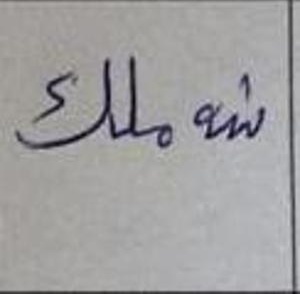 شه ملك